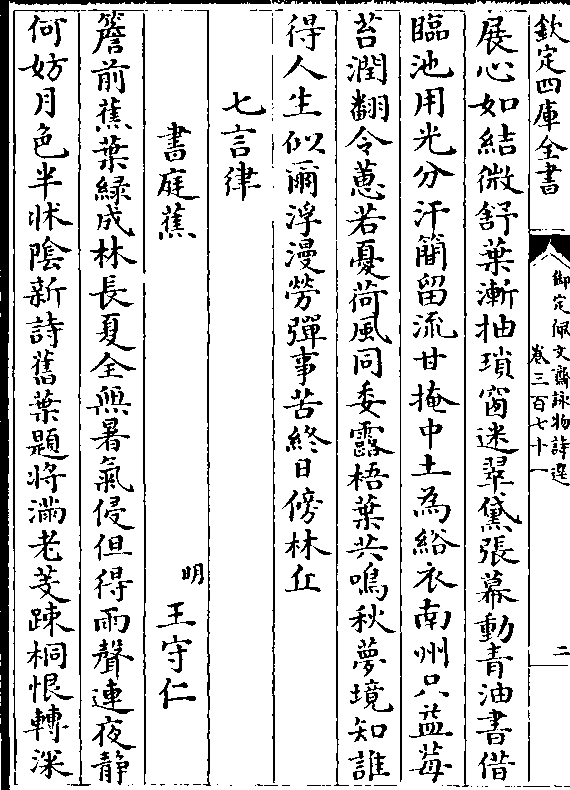 欽定四庫全書
御定佩文齋詠物詩選
卷三百七十一
二
展心如結微舒葉漸抽瑣窗迷翠黛張幕動青油書借
臨池用光分汗簡留流甘掩中土為綌衣南州只益莓
苔潤翻令蕙若憂荷風同委露梧葉共鳴秋夢境知誰
得人生似爾浮漫勞彈事苦終日傍林丘
七言律
書庭蕉
明
王守仁
簷前蕉葉綠成林長夏全無暑氣侵但得雨聲連夜靜
何妨月色半牀陰新詩舊葉題將滿老芰疎桐恨轉深